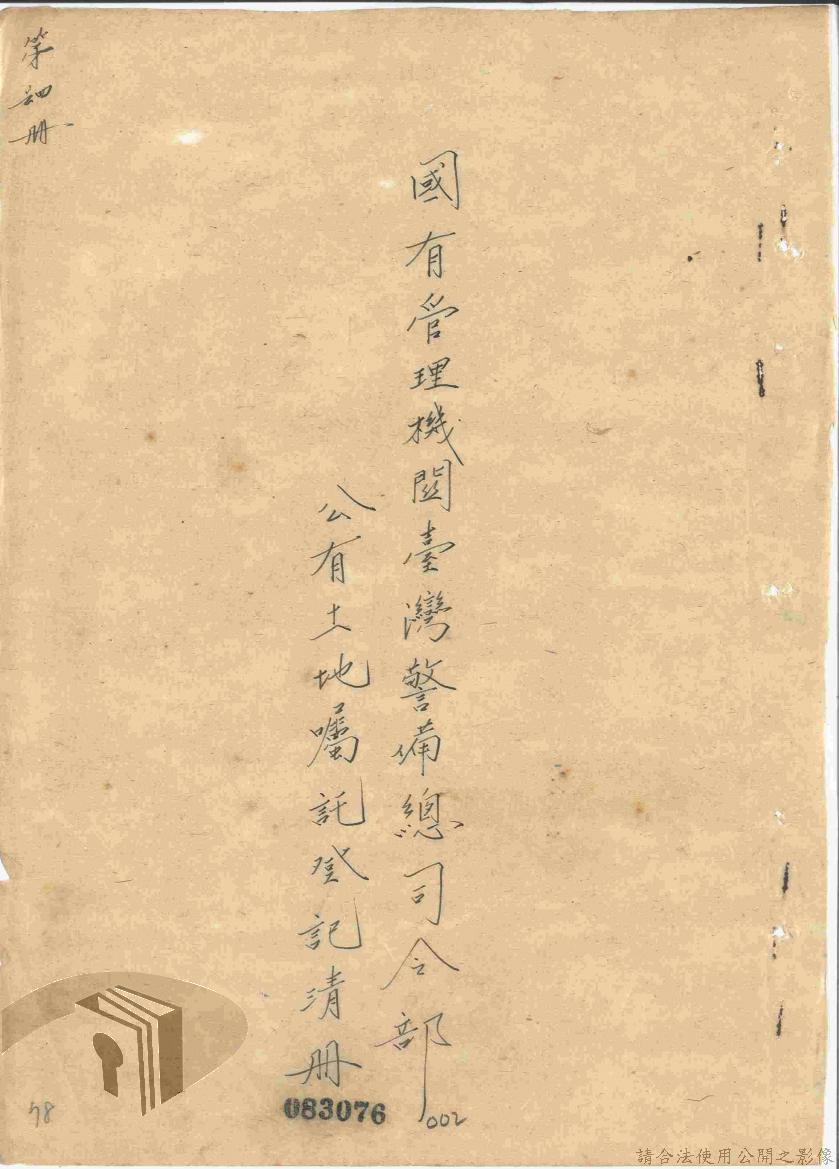 國有管理機関臺灣警備總司令部
公有土地囑託登記清册
第四册
083076
002
78
請合法使用公開之影像